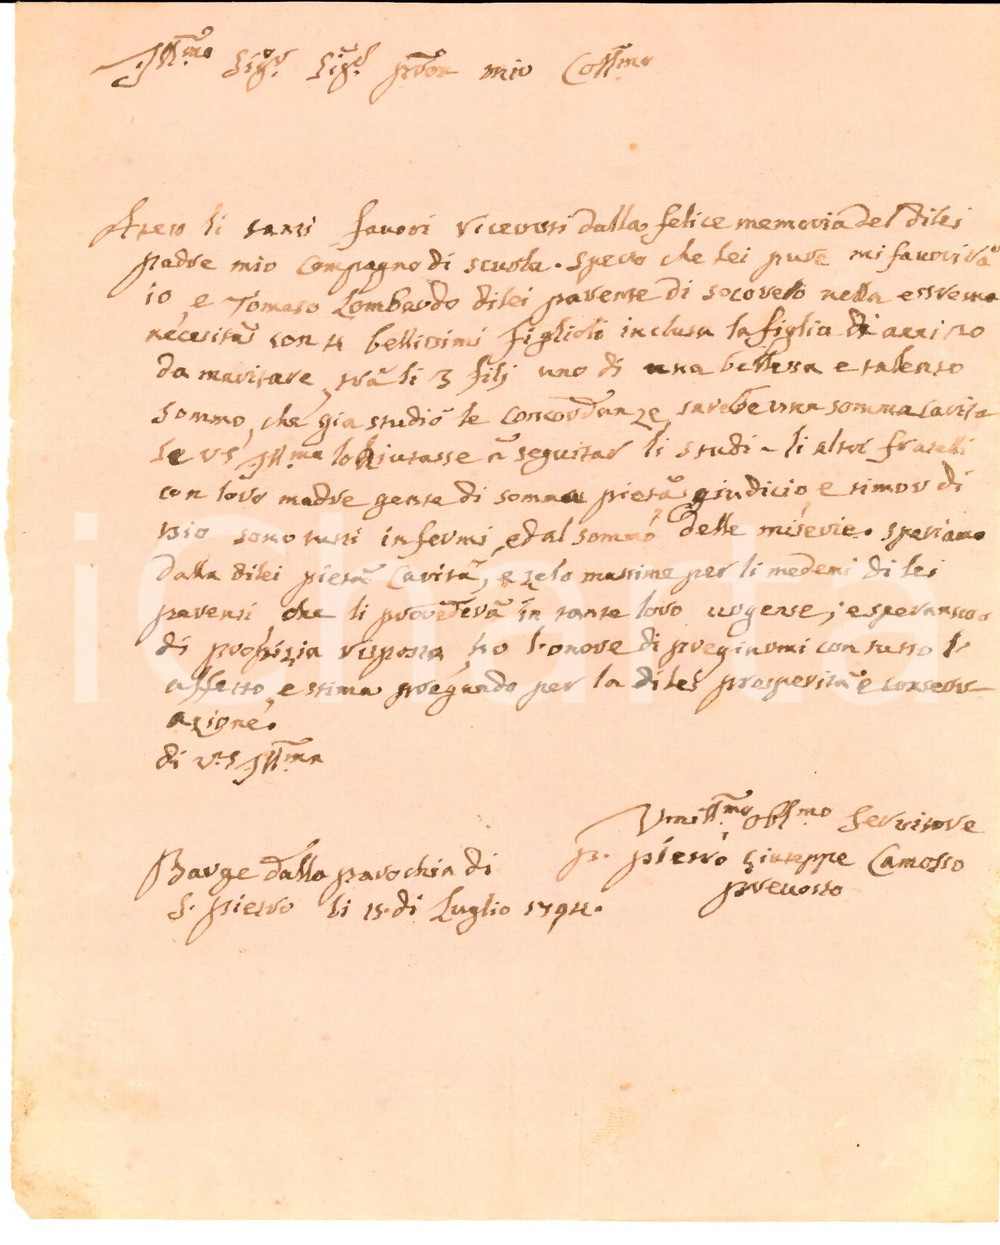 Ill.mo Sig.r Sig.r pron mio Coll.mo
Atteso li tanti favori ricevuti dalla felice memoria del dilei
padre mio compagno di scuola. spero che lei pure mi favorirà
io, e Tomaso Lombardo dilei parente di socorerlo nella estrema
necesità con 4 bellissimi figlioli inclusa la figlia di anni 20
da maritare, trà li 3 filj uno di una bellessa e talento
sommo, che già studiò le concordanze, sarebe una somma carità
se VS Ill.ma lo hiutasse à seguitar li studi li altri fratelli
con loro madre gente di somma pietà giudicio, e timor di
Dio sono tutti infermi, ed al sommo delle miserie. speriamo
dalla dilei pietà Carità, e zelo massime per li medemi di lei
parenti, che li provederà in tante loro urgense; e speransoso
di propizia risposta, hò l'onore di preginrmi con tutto l'
affetto, e stima pregando per la di lei prosperità e conserv-
azione.
di V.S Ill.ma
Umill.mo obll.mo servitore
Barge dalla parochia di
p. pietro Giuseppe Camosso
S. pietro li 15. di Luglio 1794.
prevosto
iCharta